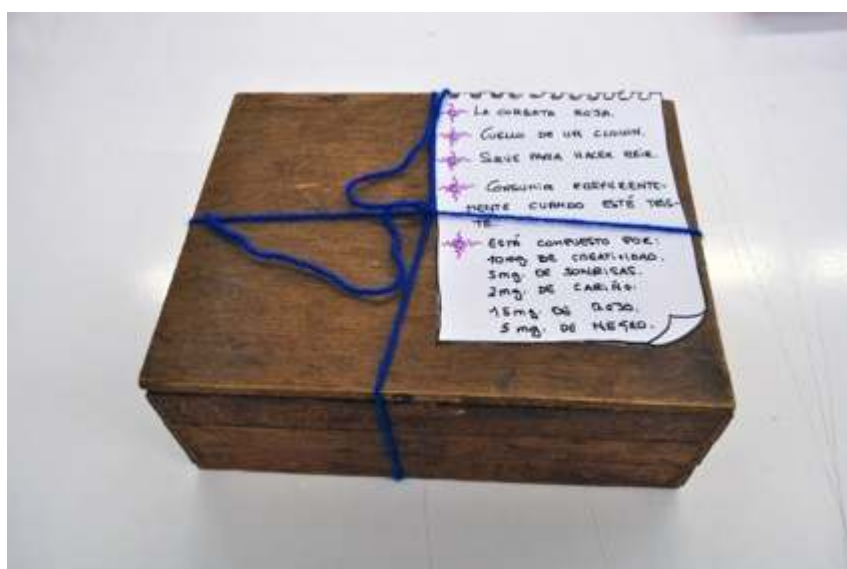 LA CORBATA ROJA.
CUELLO DE UN CLOWN.
SIRVE PARA HACER REIR.
CONSUMIR PREFERENTE-
MENTE CUANDO ESTÉ TRIS-
TE.
ESTÁ COMPUESTO POR:
10mg DE CREATIVIDAD.
5mg. DE SONRISAS.
2mg. DE CARIÑO.
15mg. DE ROJO.
5 mg. DE NEGRO.